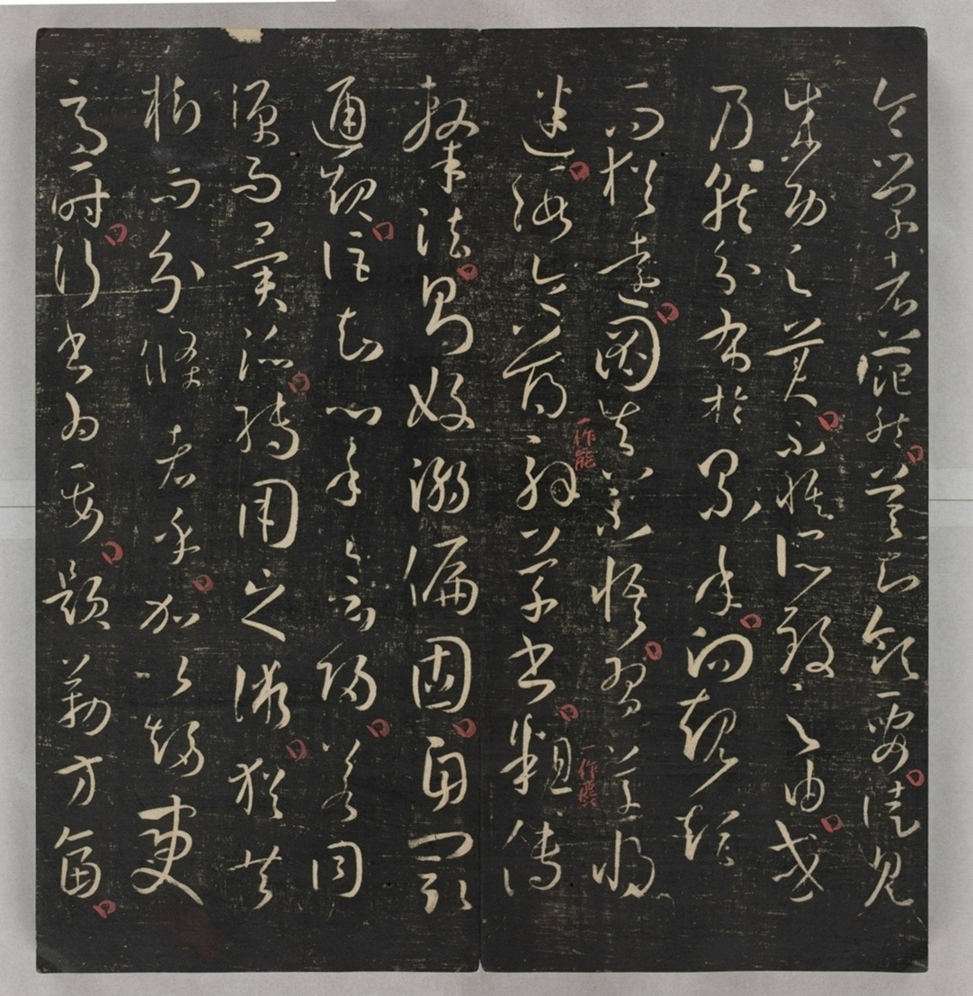 令學者茫然莫知領要徒見
成功之美不悟所致之由或
乃就分布於累年向規矩
而猶遠圖真不悟習草將
迷假令薄解草書粗傳
一作能
隸法則好溺偏固自閡
通規詎知心手會歸若同
源而異派轉用之術猶共
樹而分條者乎加以趨變
適時行書為要題勒方畐